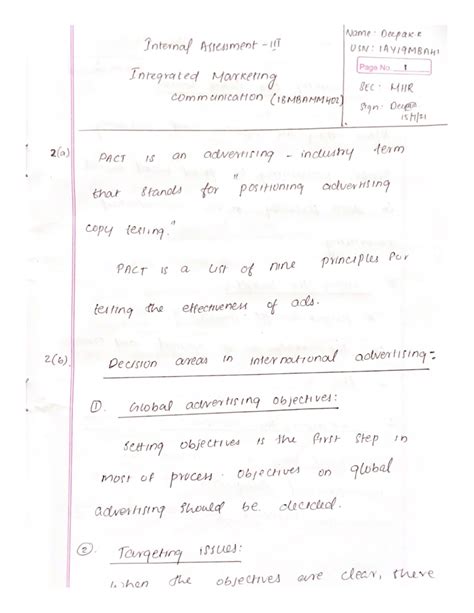 Internal Assessment - III
Integrated Marketing
Communication (18MBAMM402)
Name: Deepak E
USN: 1AY19MBA41
Page No. 1
SEC: MHR
Sign: Deepak
15/7/21
2(a) PACT is an advertising - industry term
that stands for "positioning advertising
copy testing."
PACT is a list of nine principles for
testing the effectiveness of ads.
2(b). Decision areas in international advertising:-
①. Global advertising objectives:
Setting objectives is the first step in
most of process. Objectives on global
advertising should be decided.
②. Targeting issues:
When the objectives are clear, there